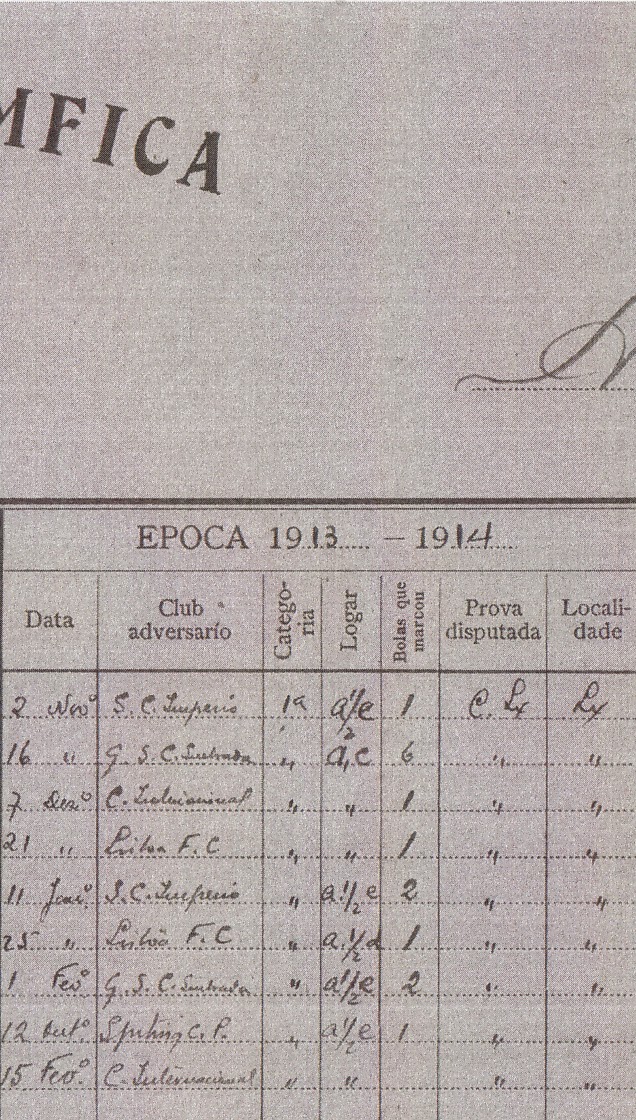 MFICA
EPOCA 1913 – 1914
Data Club adversario Catego-ria Logar Bolas que marcou Prova disputada Locali-dade
2 Novº S. C. Imperio 1ª a ½ e 1 C. Lx Lx
16 " G. S. C. a, c 6 " "
7 Dezº C. Internacional " " 1 " "
21 " Lisboa F. C " " 1 " "
11 Janº S. C. Imperio " a ½ e 2 " "
25 " Lisboa F. C " a ½ d 1 " "
1 Fevº G. S. C. " a ½ e 2 " "
12 Outº Sporting C. P. " a ½ e 1 " "
15 Fevº C. Internacional " " " "